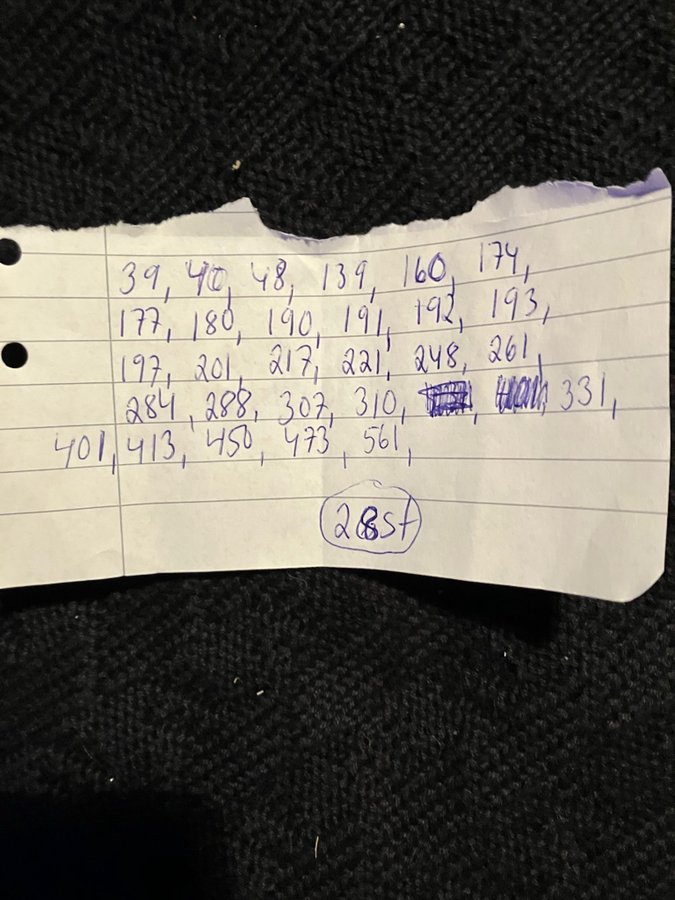 39, 40, 48, 139, 160, 174,
177, 180, 190, 191, 192, 193,
197, 201, 217, 221, 248, 261,
284, 288, 307, 310, 331,
401, 413, 450, 473, 561,
28st